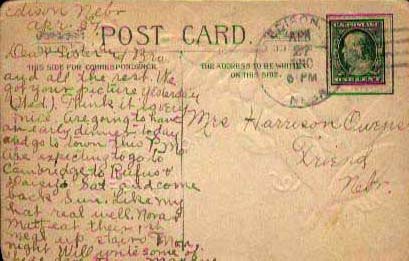 Edison Nebr
Apr. 27
Dear Sister & Bro
and all the rest. We
got your picture yesterday
(Wed). Think it very
nice. Are going to have
an early dinner today
and go to town this P.M.
are expecting to go to
Cambridge to Rufus &
Daisy's Sat. and come
back Sun. Like my
hat real well. Nora &
Matt eat their
meals up stairs now.
night Will write some of
POST CARD
THIS SIDE FOR CORRESPONDENCE
THE ADDRESS TO BE WRITTEN
ON THIS SIDE.
EDISON
APR
27
6 PM
NEBR.
Mrs Harrison Owens
Friend
Nebr.